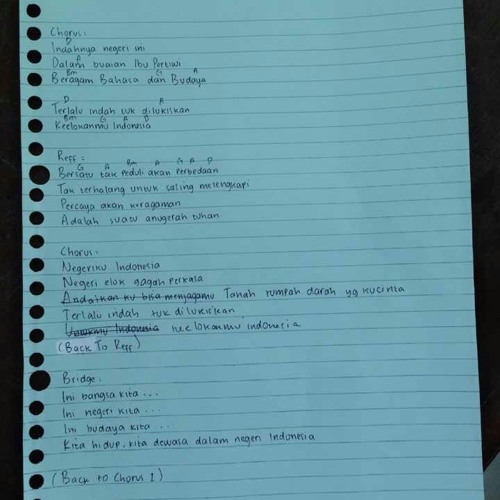 Chorus:
D
Indahnya negeri ini
A
Dalam buaian Ibu Pertiwi
Bm G A
Beragam Bahasa dan Budaya
D A
Terlalu indah tuk dilukiskan
Bm G A D
Keelokanmu Indonesia
Reff:
G A Bm A G A D
Bersatu tak peduli akan perbedaan
Tak terhalang untuk saling melengkapi
Percaya akan keragaman
Adalah suatu anugerah tuhan
Chorus:
Negeriku Indonesia
Negeri elok gagah perkasa
Andaikan ku bisa menjagamu Tanah tumpah darah yg kucinta
Terlalu indah tuk dilukiskan
Untukmu Indonesia keelokanmu indonesia
(Back To Reff)
Bridge:
Ini bangsa kita ...
Ini negeri kita ...
Ini budaya kita ..
Kita hidup, kita dewasa dalam negeri Indonesia
(Back to Chorus 1)